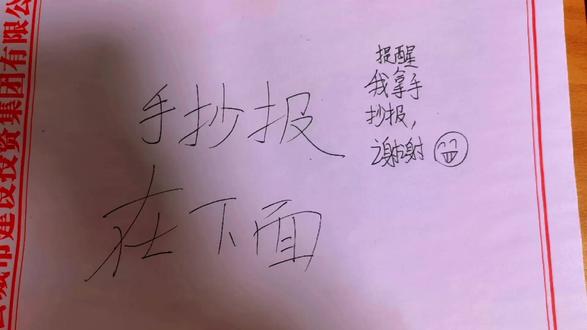 手抄报
在下面
提醒
我拿手
抄报，
谢谢
城市建设投资集团有限公